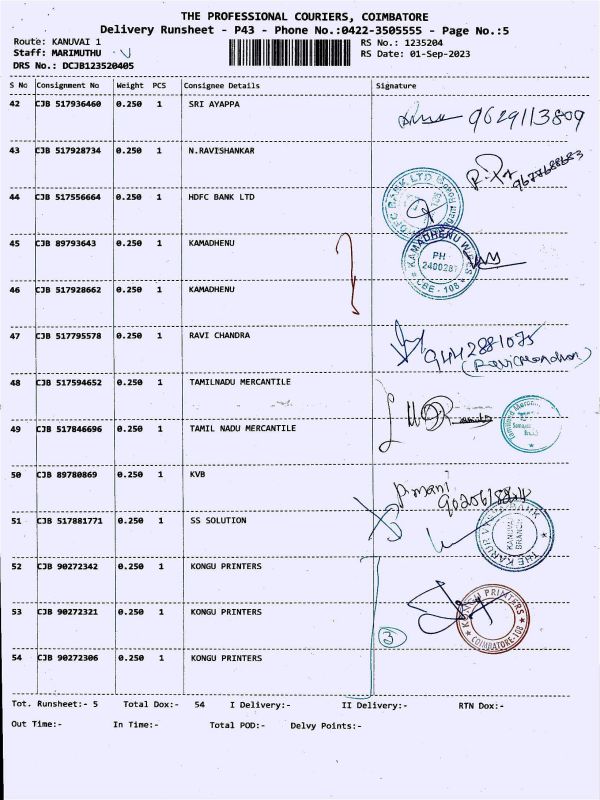 THE PROFESSIONAL COURIERS, COIMBATORE
Delivery Runsheet - P43 - Phone No.:0422-3505555 - Page No.:5
Route: KANUVAI 1
RS No.: 1235204
Staff: MARIMUTHU
RS Date: 01-Sep-2023
DRS No.: DCJB123520405
S No Consignment No Weight PCS Consignee Details Signature
42 CJB 517936460 0.250 1 SRI AYAPPA
9629113809
43 CJB 517928734 0.250 1 N.RAVISHANKAR
9677688683
44 CJB 517556664 0.250 1 HDFC BANK LTD
HDFC BANK LTD
45 CJB 89793643 0.250 1 KAMADHENU
KAMADHENU
PH
CBE - 108
46 CJB 517928662 0.250 1 KAMADHENU
47 CJB 517795578 0.250 1 RAVI CHANDRA
9442881075
(Ravichandran)
48 CJB 517594652 0.250 1 TAMILNADU MERCANTILE
49 CJB 517846696 0.250 1 TAMIL NADU MERCANTILE
50 CJB 89780869 0.250 1 KVB
P.mani
51 CJB 517881771 0.250 1 SS SOLUTION
THE KARUR VYSYA BANK
KANUVAI
BRANCH
52 CJB 90272342 0.250 1 KONGU PRINTERS
53 CJB 90272321 0.250 1 KONGU PRINTERS
KONGU PRINTERS
COIMBATORE-108
3
54 CJB 90272306 0.250 1 KONGU PRINTERS
Tot. Runsheet:- 5 Total Dox:- 54 I Delivery:- II Delivery:- RTN Dox:-
Out Time:- In Time:- Total POD:- Delvy Points:-